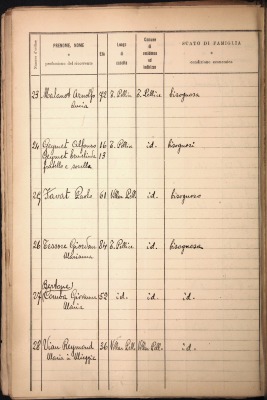 Numero d'ordine
PRENOME, NOME
e
professione del ricoverato
Età
Luogo
di
nascita
Comune
di
residenza
ed
indirizzo
STATO DI FAMIGLIA
e
condizione economica
23 Malanot Arnolfo 72 T. Pellice T. Pellice bisognosa
24 Geymet Alfonso 16 T. Pellice id. bisognosi
Geymet Ernestina 13
fratello e sorella
25 Favat Paolo 61 Villar Pell. id. bisognoso
26 Tessore Giordan 84 T. Pellice id. bisognosa
Marianna
Bertone
27 Comba Giovanna 52 id. id. id.
Maria
28 Vian Reymond 36 Villar Pell. Villar Pell. id.
Maria